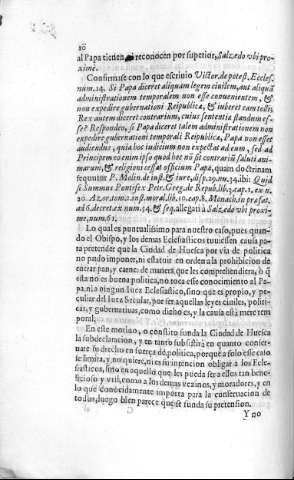 20
al Papa tienen, y reconocen por superior, Salzedo vbi pro-
xime.
Confirmase con lo que escriuio Victor. de potest. Eccles.
num. 14. Si Papa diceret aliquam legem ciuilem, aut aliquā
administrationem temporalem non esse conuenientem, &
non expedire gubernationi Reipublicæ, & iuberet eam tolli,
Rex autem diceret contrarium, cuius sententia standum es-
se? Respondeo, si Papa diceret talem administrationem non
expedire gubernationi temporali Reipublicæ, Papa non esset
audiendus, quia hoc iudicium non expectat ad eum, sed ad
Principem eo enim ipso quod hoc nō sit contrariū saluti ani-
marum, & religioni cessat officium Papæ, quam doctrinam
sequutus P. Molin. de inst. & iure, disp. 29. num. 14. ibi: Quid
si Summus Pontifex Petr. Greg. de Republ. lib. 2. cap. 1. ex n.
20. Azor. tom. 2. inst. moral. lib. 10. cap. 8. Menoch. in præfat.
ad 6. decret. ex num. 14. & seq. allegati à Salzedo vbi proxi-
me, num. 61.
Lo qual es puntualissimo para nuestro caso, pues quan-
do el Obispo, y los demas Eclesiasticos tuuiessen causa pa-
ra pretender que la Ciudad de Huesca por via de politica
no pudo imponer, ni estatuir en orden a la prohibicion de
entrar pan, y carne: de manera, que les comprehendiera, ò q̃
esta no es buena politica, no toca ese conocimiento al Pa-
pa, ni a ningun Iuez Eclesiastico, sino que es propio, y pe-
culiar del Iuez Secular, por ser aquellas leyes ciuiles, politi-
cas, y gubernatiuas, como dicho es, y la causa està mere tem-
poral.
En este motiuo, o constituto funda la Ciudad de Huesca
la subdeclaracion, y en tanto subsistirà en quanto conser-
uare su drecho en fuerça de politica, porque a solo ese caso
se limita, y no quiere, ni es su intencion obligar a los Ecle-
siasticos, sino en aquello que les pueda ser a ellos tan bene-
ficioso y vtil, como a los demas vezinos, y moradores, y en
lo que conocidamente importa para la conseruacion de
todos, luego bien parece que se funda su pretension.
Y no